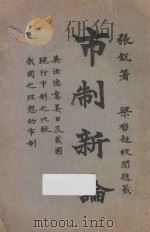 張銳著
梁啓超校閱
市制新論
英法德意美日及我國
現行市制之比較
我國之理想的市制